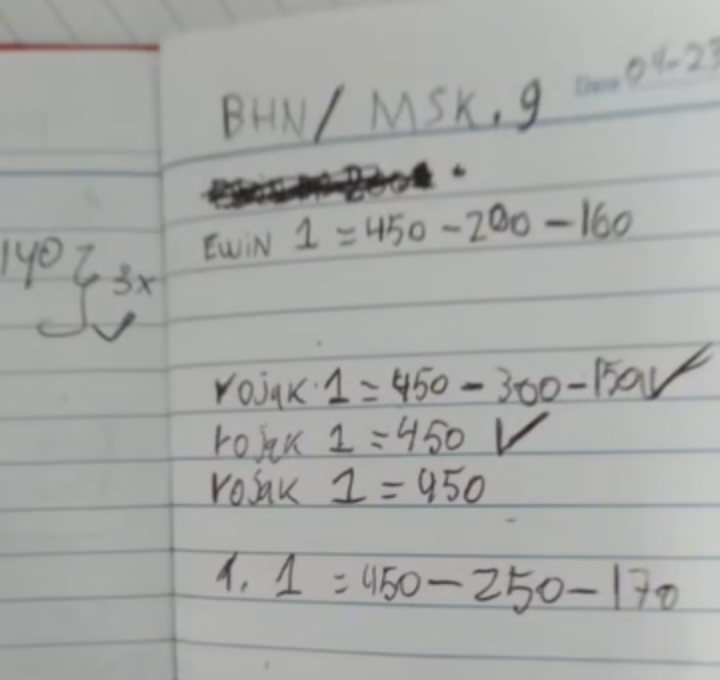 Date 04-23
BHN/ MSK. 9
EWIN 1 = 450 - 200 - 160
140
3x
rojak 1 = 450 - 300 - 150
rojak 1 = 450
rojak 1 = 450
1. 1 = 450 - 250 - 170